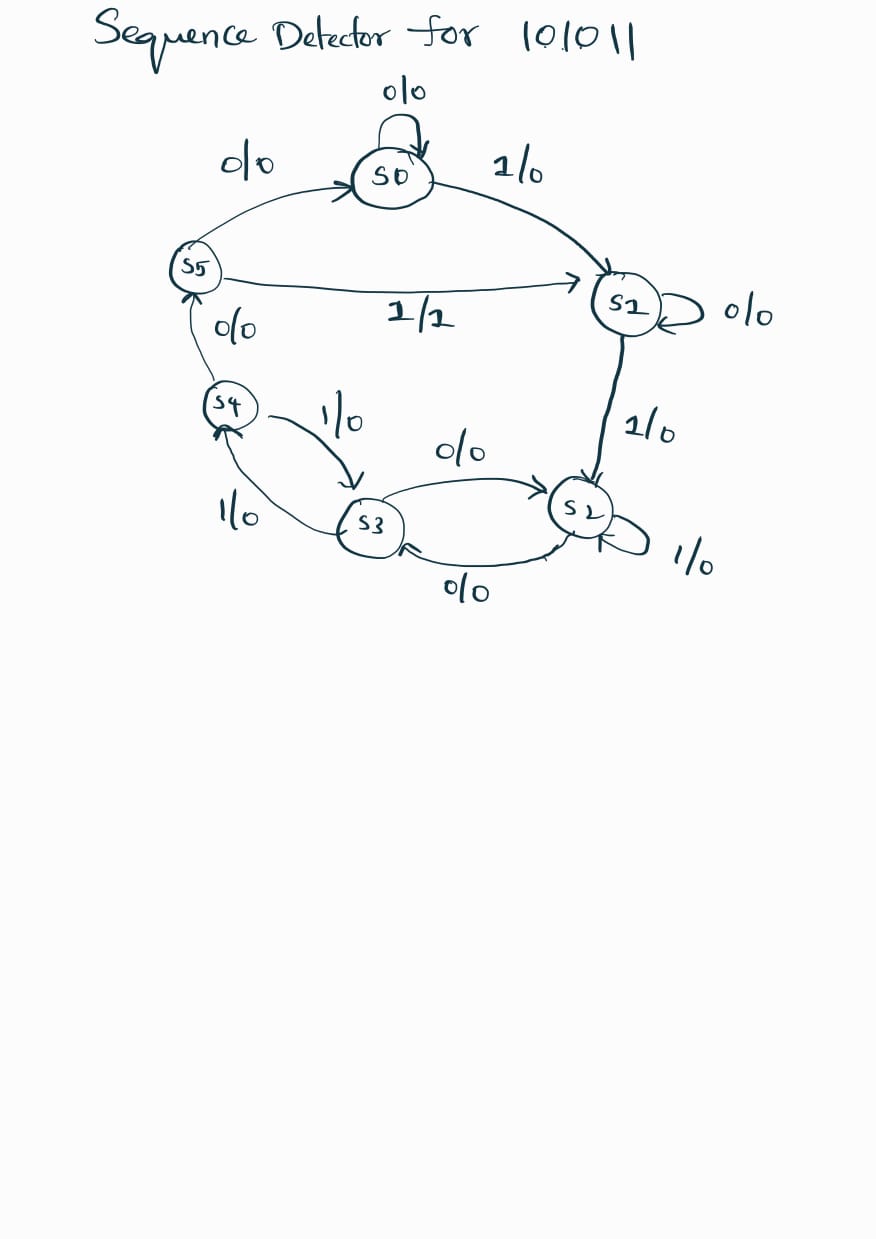 Sequence Detector for 101011
0/0
0/0
S0
1/0
S5
1/1
S1
0/0
0/0
S4
1/0
0/0
1/0
1/0
S3
S2
1/0
0/0